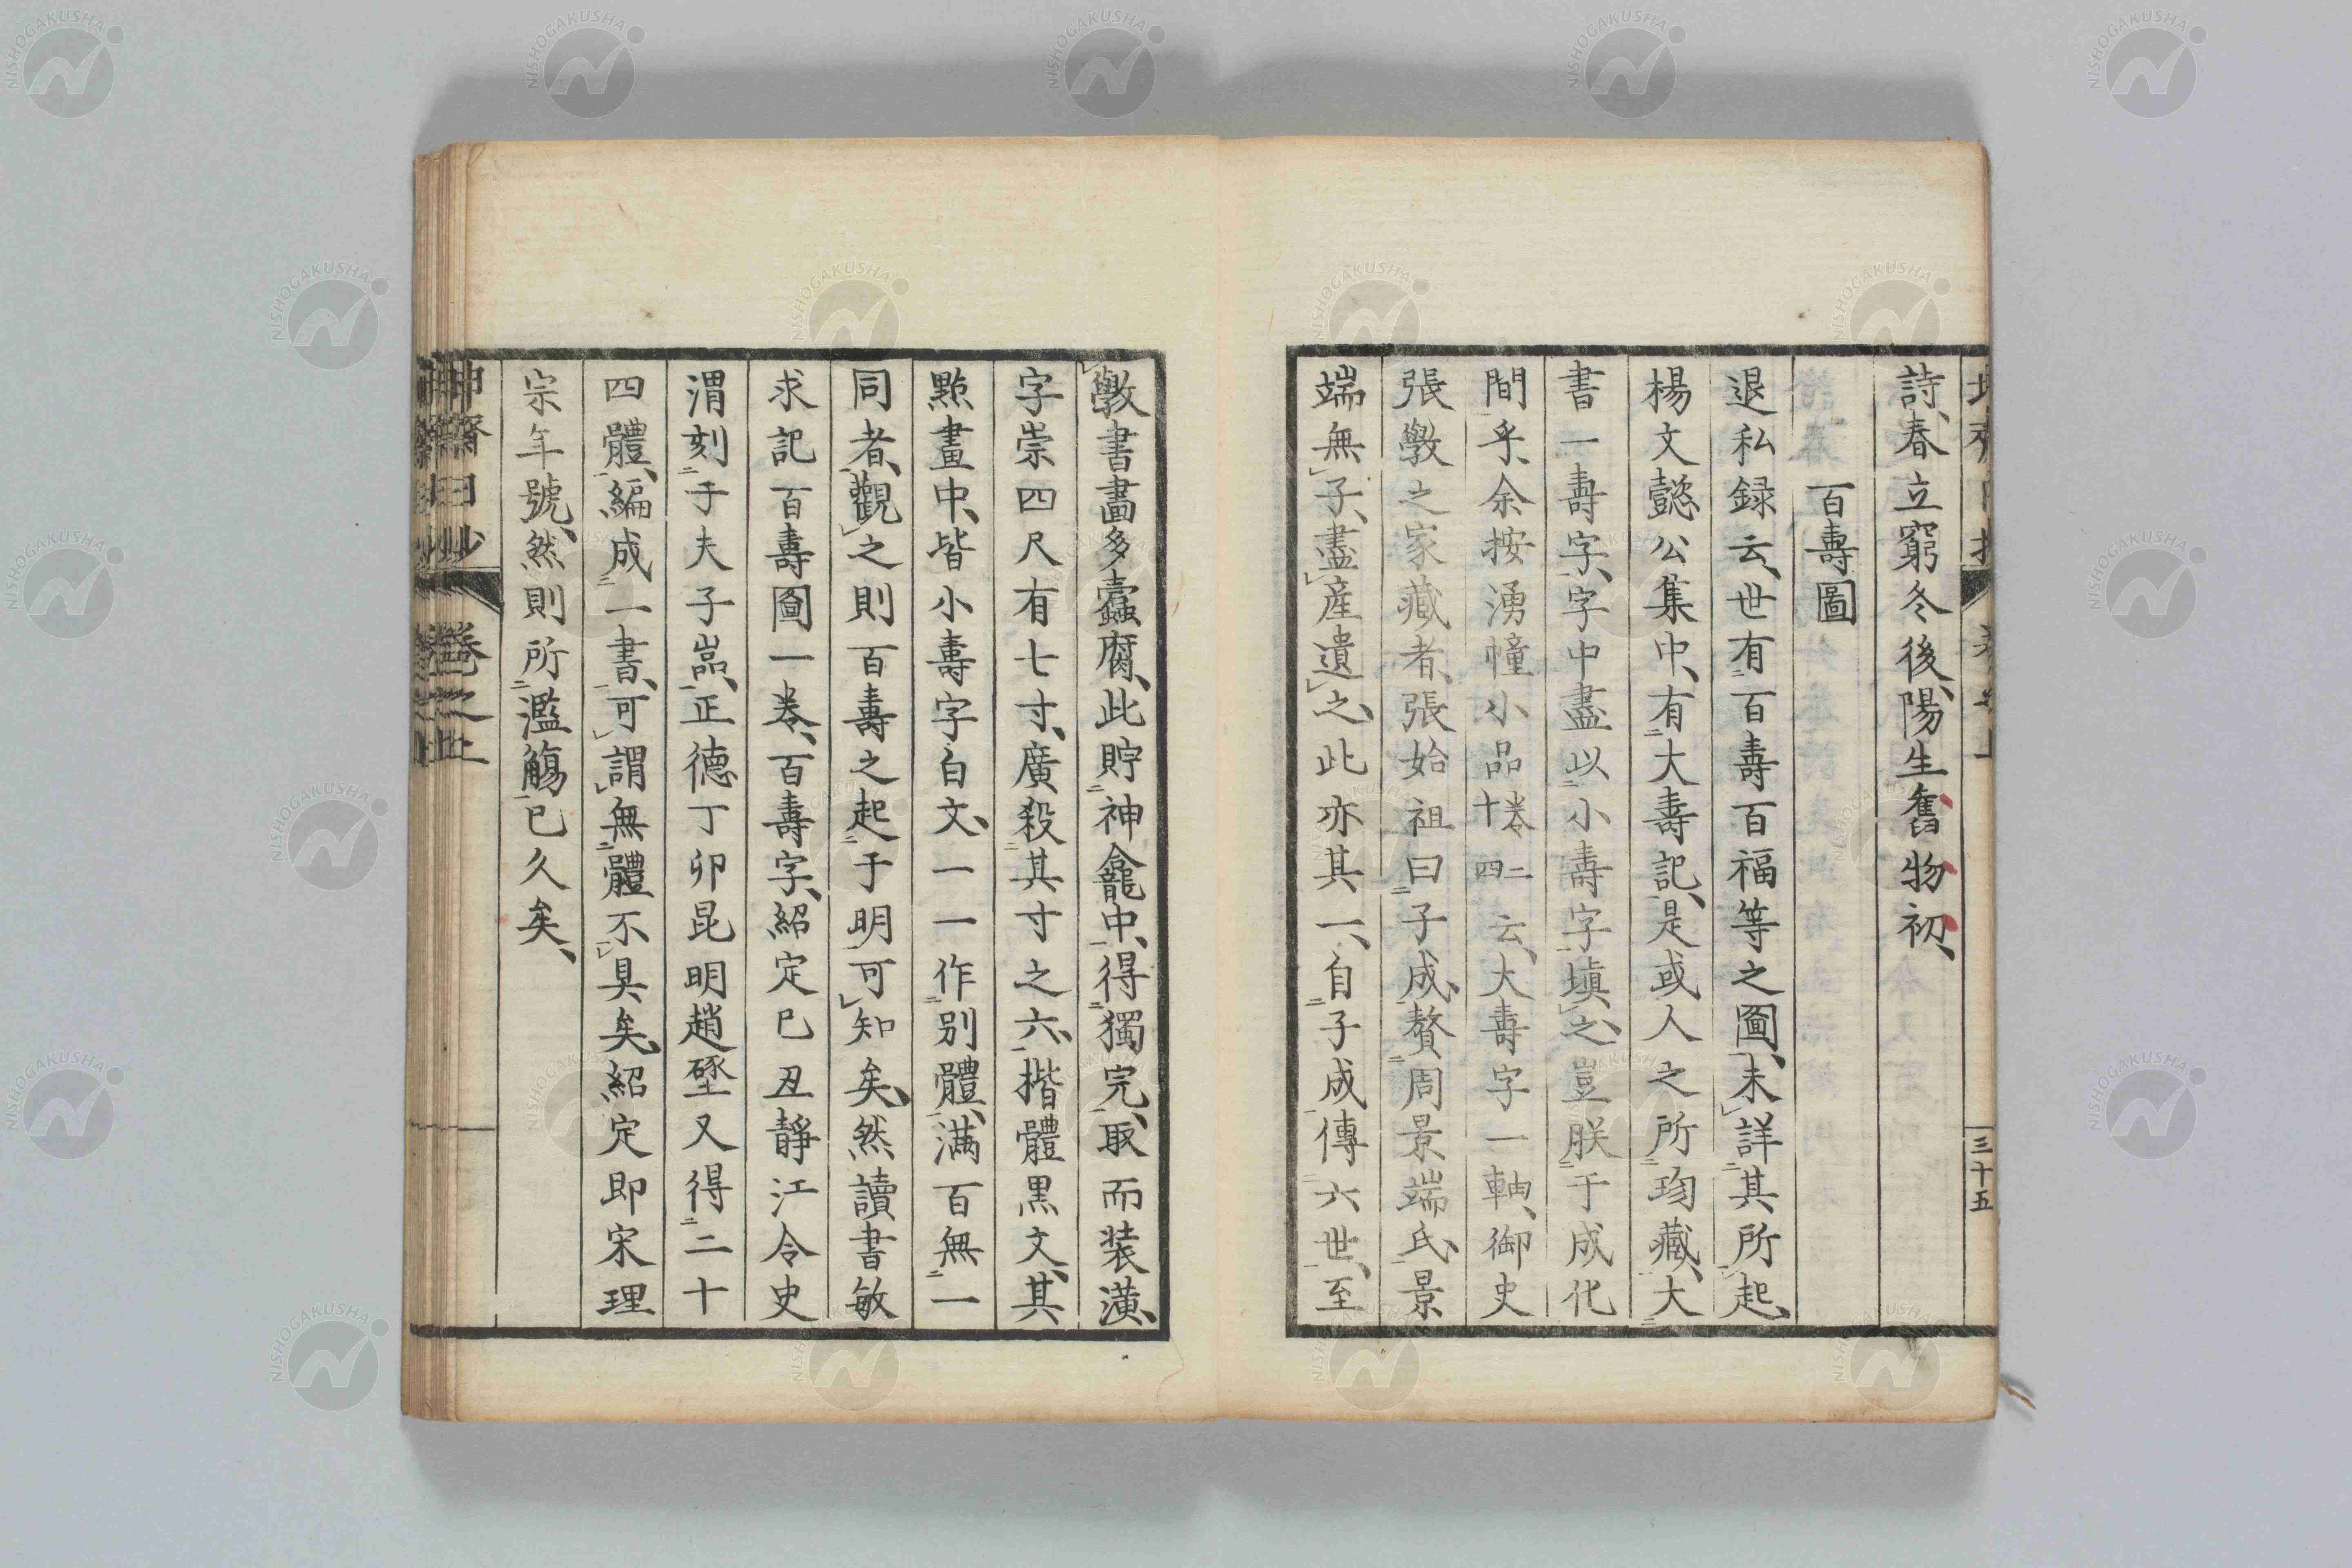 詩、春立窮冬後、陽生舊物初、
百壽圖
退私録云、世有百壽百福等之圖、未詳其所起、
楊文懿公集中、有大壽記、是或人之所珣藏、大
書一壽字、字中盡以小壽字塡之、豈朕于成化
間乎、余按湧幢小品卷二十四云、大壽字一軸、御史
張斅之家藏者、張始祖曰子成、贅周景端氏、景
端無子、盡産遺之、此亦其一、自子成傳六世、至
斅書畵多蠹腐、此貯神龕中、得獨完、取而装潢、
字崇四尺有七寸、廣殺其寸之六、揩體黒文、其
㸃畫中、皆小壽字白文、一一作别體、滿百無一
同者、觀之則百壽之起于明可知矣、然讀書敏
求記百壽圖一卷、百壽字、紹定巳丑靜江令史
渭刻于夫子嵓、正德丁卯昆明趙壁又得二十
四體、編成一書、可謂無體不具矣、紹定即宋理
宗年號、然則所濫觴已久矣、
三十五
卷之上